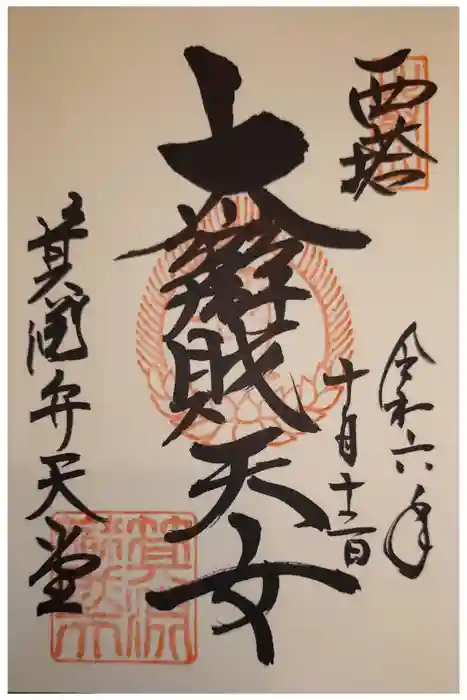 西塔
令和六年
十月十二日
大辯財天女
箕淵弁天堂